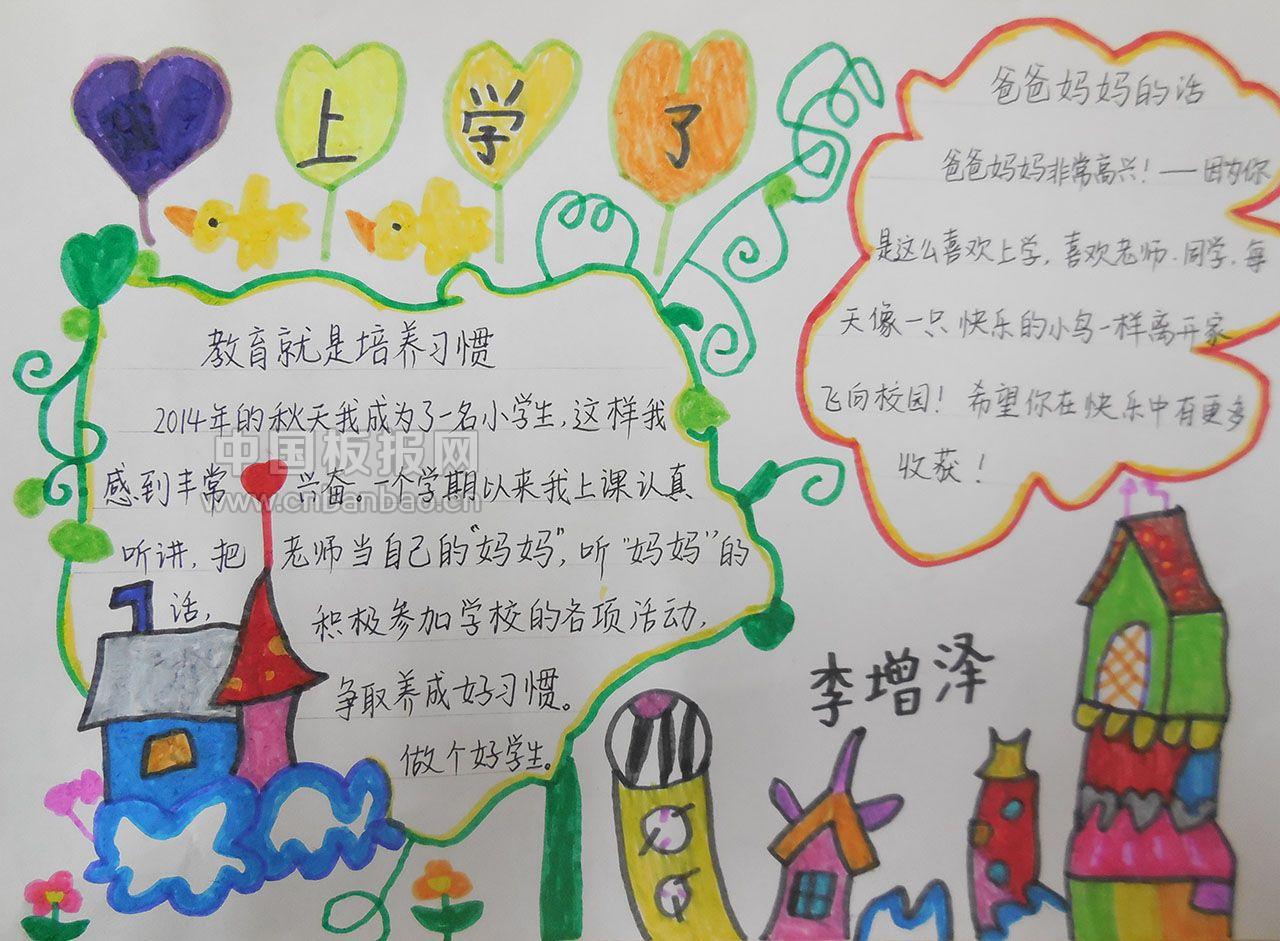 我上学了
爸爸妈妈的话
爸爸妈妈非常高兴！——因为你
是这么喜欢上学，喜欢老师、同学，每
天像一只快乐的小鸟一样离开家
飞向校园！希望你在快乐中有更多
收获！
教育就是培养习惯
2014年的秋天我成为了一名小学生，这样我
感到丰常兴奋。一个学期以来我上课认真
听讲，把老师当自己的“妈妈”，听“妈妈”的
话，积极参加学校的各项活动，
争取养成好习惯。
做个好学生。
李增泽
中国板报网
www.cnbanbao.cn